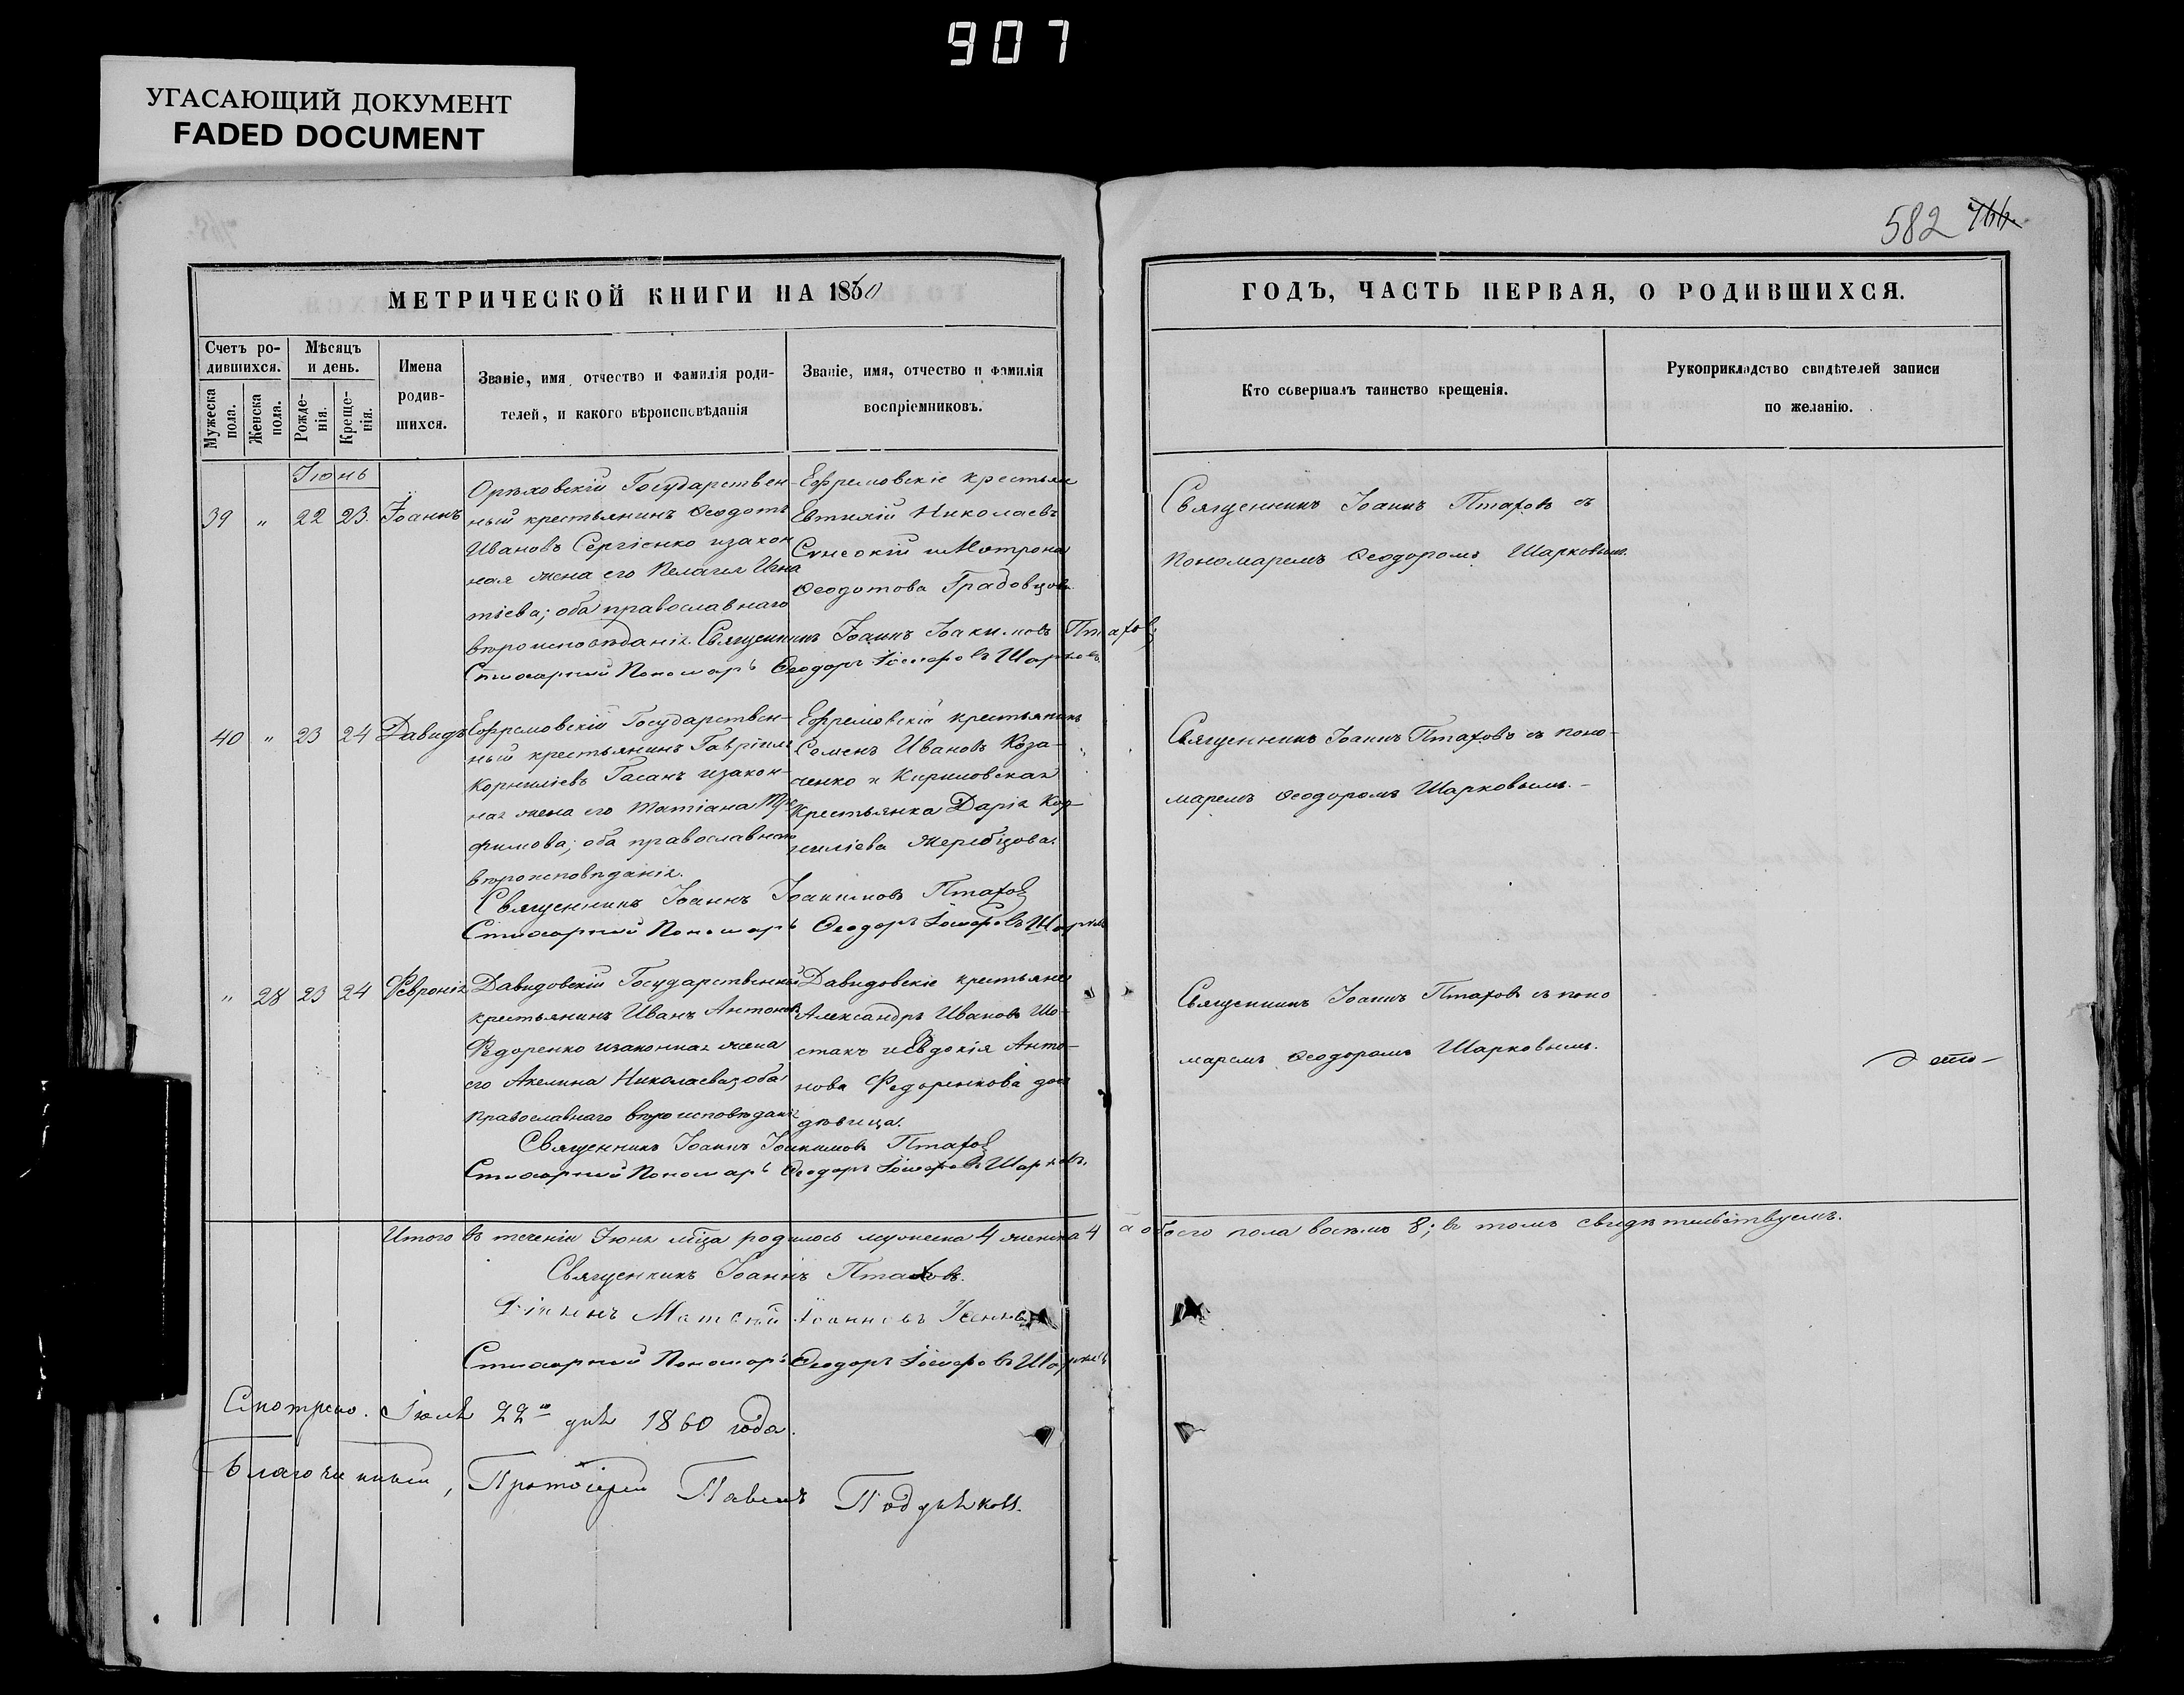 907
УГАСАЮЩИЙ ДОКУМЕНТ
FADED DOCUMENT
582 766.
МЕТРИЧЕСКОЙ КНИГИ НА 1860
ГОДЪ, ЧАСТЬ ПЕРВАЯ, О РОДИВШИХСЯ.
Счетъ ро-
дившихся.
Мужеска пола.
Женска пола.
Мѣсяцъ
и день.
Рожде-
нія.
Креще-
нія.
Имена
родив-
шихся.
Званіе, имя, отчество и фамилія роди-
телей, и какого вѣроисповѣданія
Званіе, имя, отчество и фамилія
воспріемниковъ.
Кто совершалъ таинство крещенія.
Рукоприкладство свидѣтелей записи
по желанію.
Іюнь
39 " 22 23. Іоаннъ
Орѣховскій Государствен-
ный крестьянинъ Ѳеодотъ
Ивановъ Сергіенко и закон
ная жена его Пелагея Игна
тіева; оба православнаго
вѣроисповѣданія. Священникъ Іоаннъ Іоакимовъ Птаховъ
Стихарный Пономарь Ѳеодоръ Іосифовъ Шарковъ.
Ефремовскіе крестьяне
Евтихій Николаевъ
и Мотрона
Ѳеодотова
Священникъ Іоаннъ Птаховъ съ
пономаремъ Ѳеодоромъ Шарковымъ.
40 " 23 24 Давидъ
Ефремовскій Государствен-
ный крестьянинъ Гавріилъ
Корниліевъ Гасанъ и закон-
ная жена его Татіана Тро
фимова; оба православнаго
вѣроисповѣданія.
Священникъ Іоаннъ Іоакимовъ Птаховъ
Стихарный Пономарь Ѳеодоръ Іосифовъ Шарковъ
Ефремовскій крестьянинъ
Семенъ Ивановъ Коза-
ченко и Кириловская
крестьянка Дарія Кор-
ниліева
Священникъ Іоаннъ Птаховъ съ поно-
маремъ Ѳеодоромъ Шарковымъ.-
" 28 23 24 Февронія
Давидовскій Государственный
крестьянинъ Иванъ Антоновъ
Федоренко и законная жена
его Акелина Николаева; оба
православнаго вѣроисповѣданія
Священникъ Іоаннъ Іоакимовъ Птаховъ
Стихарный Пономарь Ѳеодоръ Іосифовъ Шарковъ.
Давидовскіе крестьяне
Александръ Ивановъ Шо-
стакъ и Евдокія Анто-
нова Федоренкова
дѣвица.
Священникъ Іоаннъ Птаховъ съ поно
маремъ Ѳеодоромъ Шарковымъ.
Итого въ теченіи Іюня мѣсяца родилось мужеска 4 женска 4 а обоего пола восемь 8; въ томъ свидѣтельствуемъ.
Священникъ Іоаннъ Птаховъ.
Діаконъ Матѳей Іоанновъ
Стихарный Пономарь Ѳеодоръ Іосифовъ Шарковъ
Смотрено. Іюля 22го дня 1860 года.
Благочинный, Протоіерей Павелъ